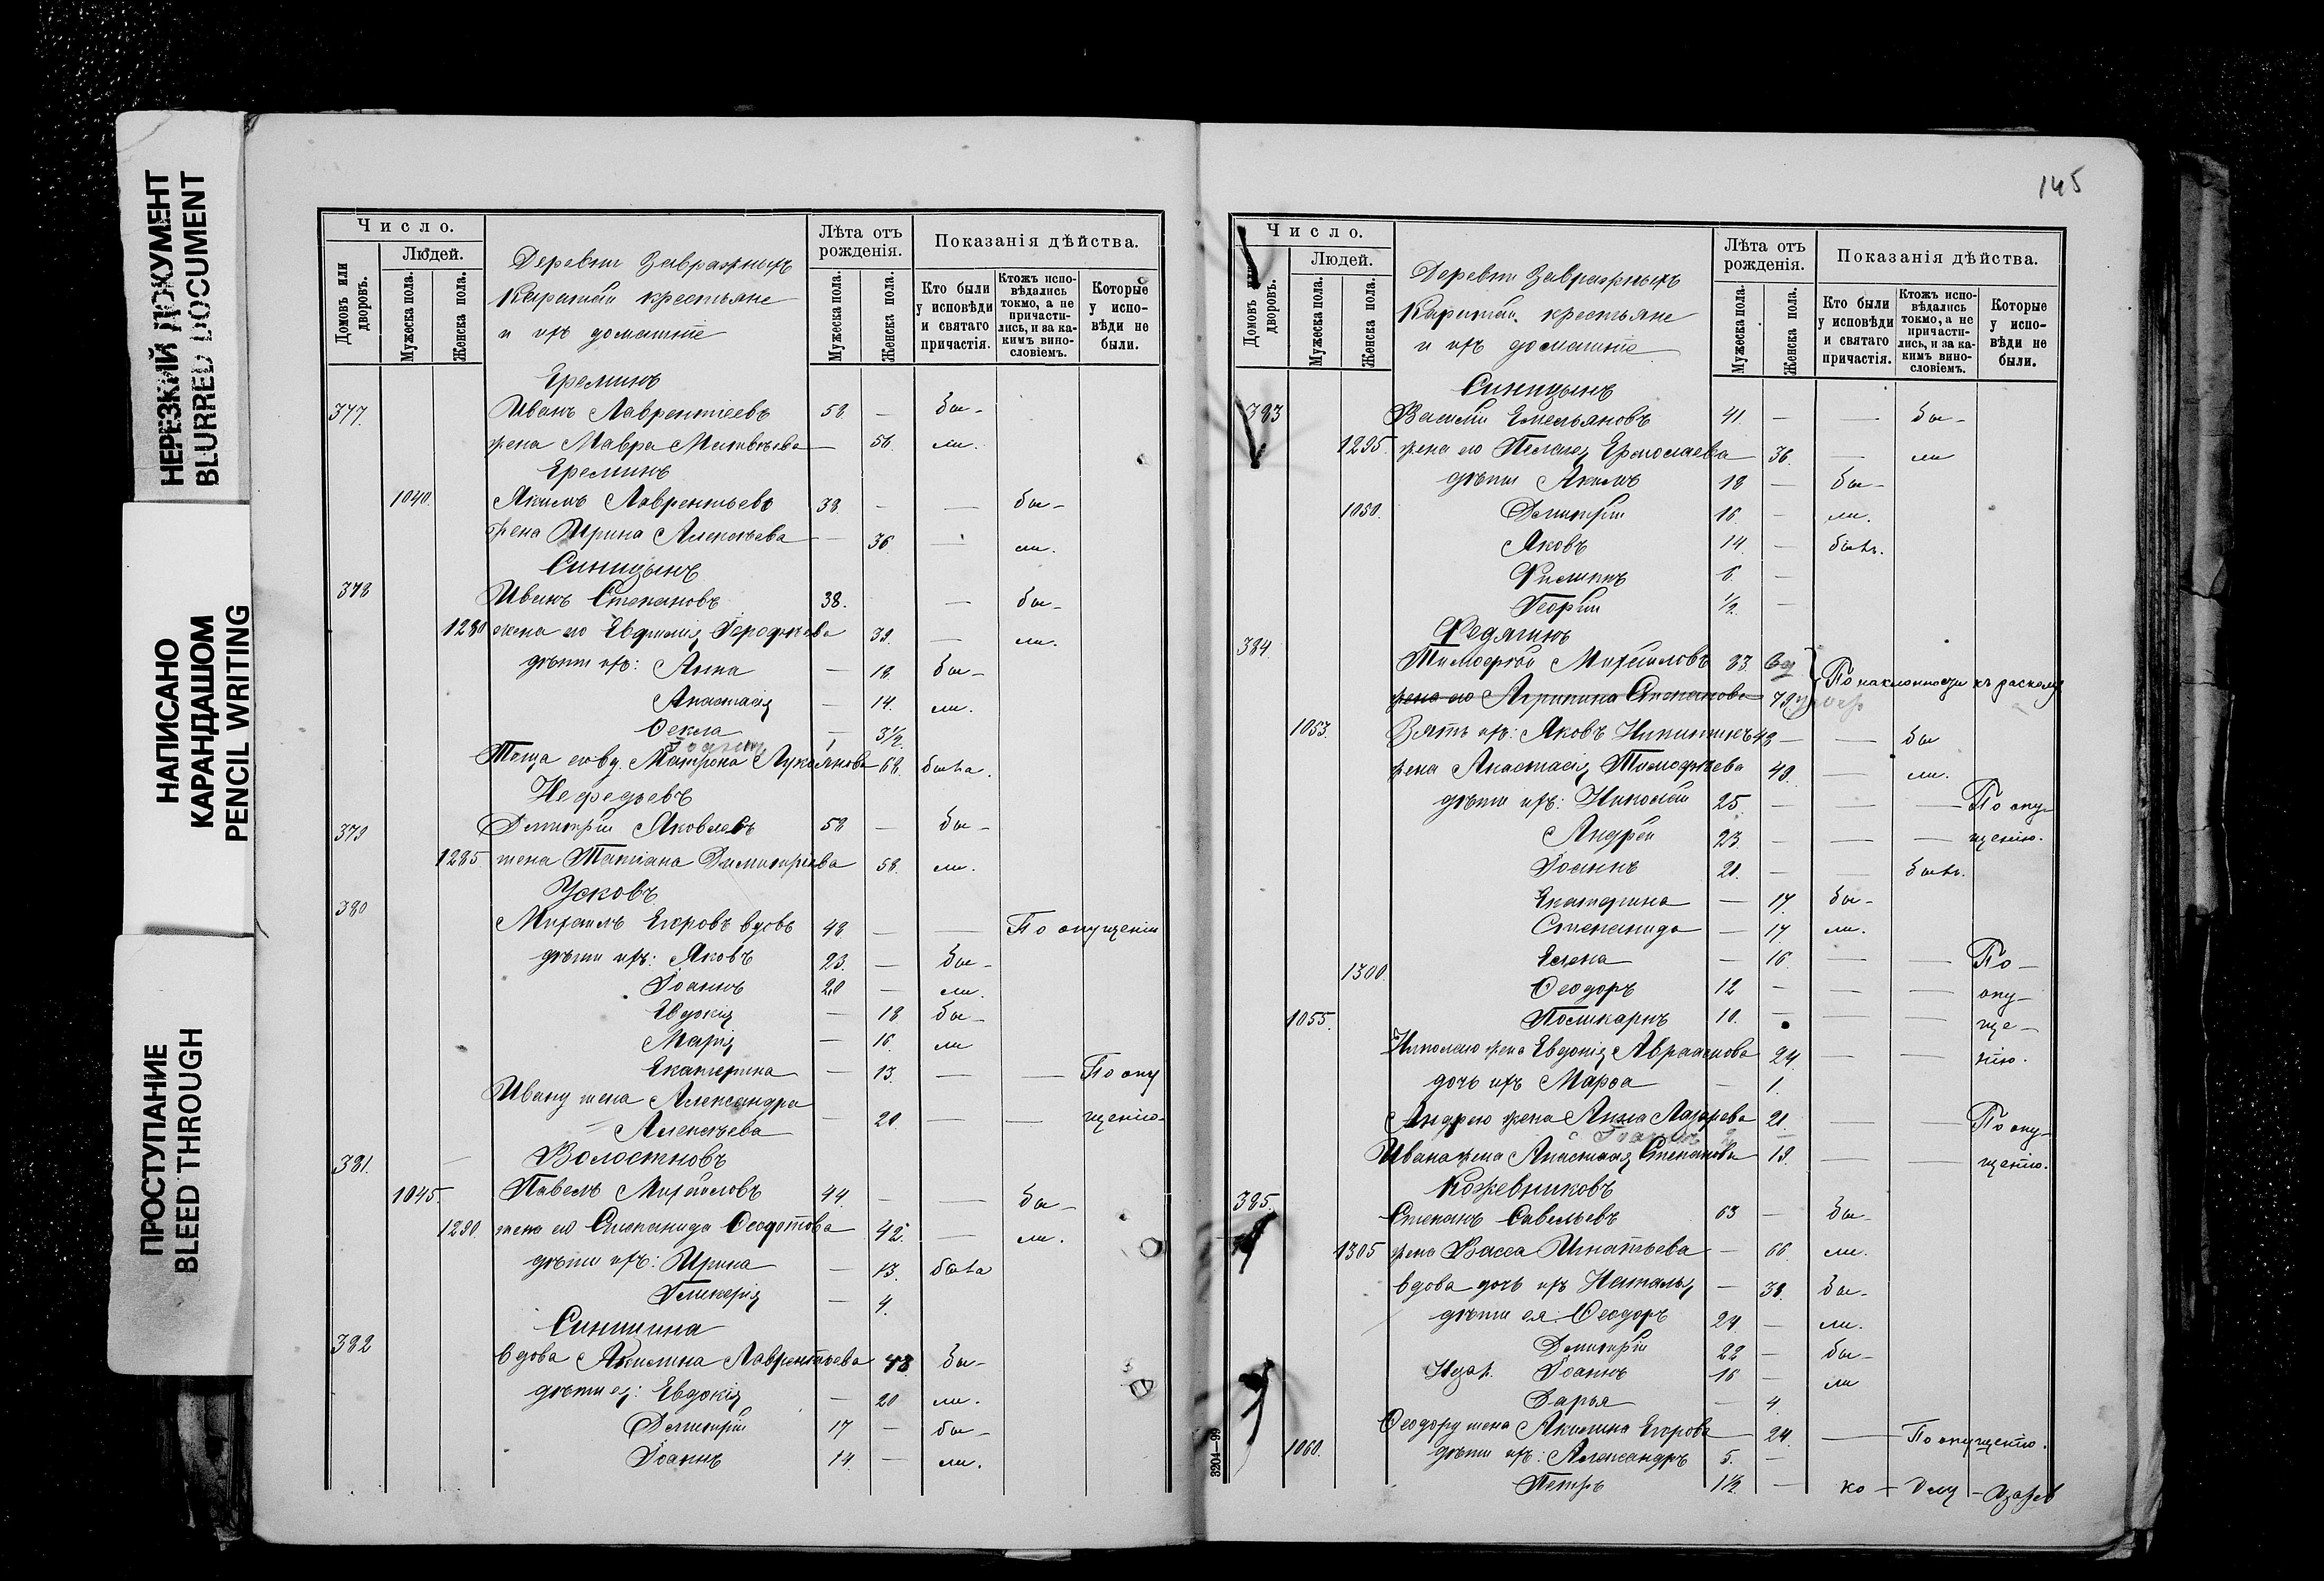 НЕРЕЗКИЙ ДОКУМЕНТ
BLURRED DOCUMENT
НАПИСАНО
КАРАНДАШОМ
PENCIL WRITING
ПРОСТУПАНИЕ
BLEED THROUGH
Число.
Домовъ или дворовъ.
Людей.
Мужеска пола.
Женска пола.
Деревни Завражныхъ
Каратай крестьяне
и ихъ домашніе
Лѣта отъ рожденія.
Мужеска пола.
Женска пола.
Показанія дѣйства.
Кто были у исповѣди и святаго причастія.
Ктожъ исповѣдались токмо, а не причастились, и за какимъ винословіемъ.
Которые у исповѣди не были.
Ереминъ
377. Иванъ Лаврентіевъ 58 — бы-
жена Мавра Матвѣева — 56. ли.
Ереминъ
1040. Якимъ Лаврентьевъ 38. — — бы-
жена Ирина Алексѣева — 36 — ли.
Синицынъ
378 Иванъ Степановъ 38. — бы-
1280 жена его Евфимія 39. — ли.
дѣти ихъ: Анна — 18 бы-
Анастасія — 14. ли.
Ѳекла — 3½.
Теща его вд. Матрона Лукіянова 68. была.
Нефедьевъ
379 Димитрій Яковлевъ 58 — бы-
1285. жена Татіана Димитріева 58. ли.
Усковъ
380 Михаилъ Егоровъ вдовъ 48. — — По опущенію
дѣти ихъ: Яковъ 23. — бы-
Іоаннъ 20 — ли.
Евдокія — 18 бы-
Марія — 16. ли
Екатерина — 13. — — По опу
Ивану жена Александра
Алексѣева — 20. — — щенію
381. Волостновъ
1045. Павелъ Михайловъ 44. — — бы-
1290. жена его Степанида Ѳеодотова 42. — ли.
дѣти ихъ: Ирина — 13. была
Гликерія — 4.
Синицина
382 вдова Акилина Лаврентьева 48. бы-
дѣти ея: Евдокія — 20 ли.
Димитрій 17 — бы-
Іоаннъ 14. — ли.
145
Число.
Домовъ или дворовъ.
Людей.
Мужеска пола.
Женска пола.
Деревни Завражныхъ
Каратай крестьяне
и ихъ домашніе
Лѣта отъ рожденія.
Мужеска пола.
Женска пола.
Показанія дѣйства.
Кто были у исповѣди и святаго причастія.
Ктожъ исповѣдались токмо, а не причастились, и за какимъ винословіемъ.
Которые у исповѣди не были.
Синицынъ
383 Василій Емельяновъ 41. — — бы-
1295. жена его Пелагея Ермолаева 36. — ли
дѣти Акимъ 18 — бы-
1050. Димитрій 16. — ли.
Яковъ 14. — былъ.
Филиппъ 6. —
Георгій ½. —
Федягинъ
384. Тимофей Михайловъ 83. вд По наклонности къ расколу
жена его Агрипина Степанова 79
1053. Зять ихъ: Яковъ Никитинъ 48 — — бы
жена Анастасія Тимофѣева 48. — ли.
дѣти ихъ: Николай 25. — — — По опу-
Андрей 23. — — — щенію.
Іоаннъ 20. — — былъ.
Екатерина — 17. бы-
Степанида — 17. ли.
1300. Елена — 16. — — По-
Ѳеодоръ 12 — — — опу-
1055. Поликарпъ 10. — — ще-
Николаю жена Евдокія Авраамова 24. — — нію.
дочь ихъ Марѳа — 1.
Андрею жена Анна Лазарева 21. — — По опу-
Ивана жена Анастасія Степанова 19. — — щенію.
Кожевниковъ
385. Степанъ Савельевъ 63 — бы-
1305 жена Васса Игнатьева — 66 ли.
вдова дочь ихъ Наталья — 38. бы-
дѣти ея: Ѳеодоръ 24. — ли.
Димитрій 22 — бы-
Іоаннъ 16 — ли
Дарья — 4.
Ѳеодору жена Акилина Егорова 24. — По опущенію.
1060. дѣти ихъ: Александръ 5. —
Петръ 1½. —
3204—99